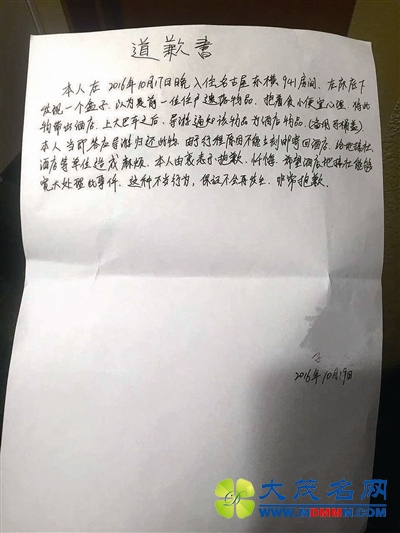 道歉書
本人在2016年10月17日晚入住名古屋东横941房间、在床底下
发现一个盒子、以为是前一位住户遗落物品、抱着贪小便宜心理、将此
物带出酒店、上大巴车之后、导游通知该物品为酒店物品（备用马桶盖）
本人当即答应导游归还此物、由于行程原因不能立刻邮寄回酒店、给地接社、
酒店等单位造成麻烦、本人由衷表示抱歉、忏悔、希望酒店地接社能够
宽大处理此事件、这种不当行为、保证不会再发生、非常抱歉、
2016年10月19日
大茂名网
WWW.DMMMN.COM